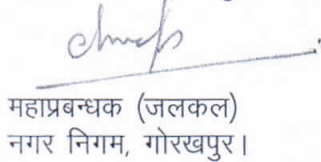 महाप्रबन्धक (जलकल)
नगर निगम, गोरखपुर।